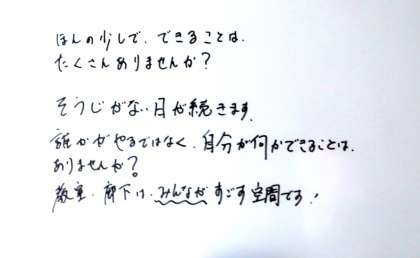 ほんの少しで、できることは、
たくさんありませんか？
そうじがない日が続きます。
誰かがやるではなく、自分が何かできることは、
ありませんか？
教室・廊下は、みんながすごす空間です！